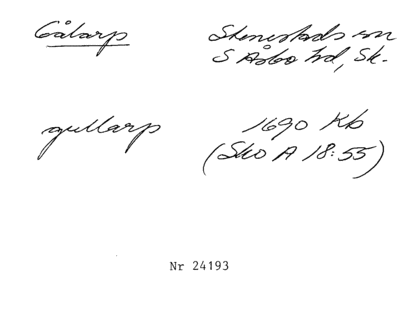 Gålarp
Stenestads sn
S Åsbo hd, Sk.
gullarp
1690 Kb
(Sko A 18:55)
Nr 24193